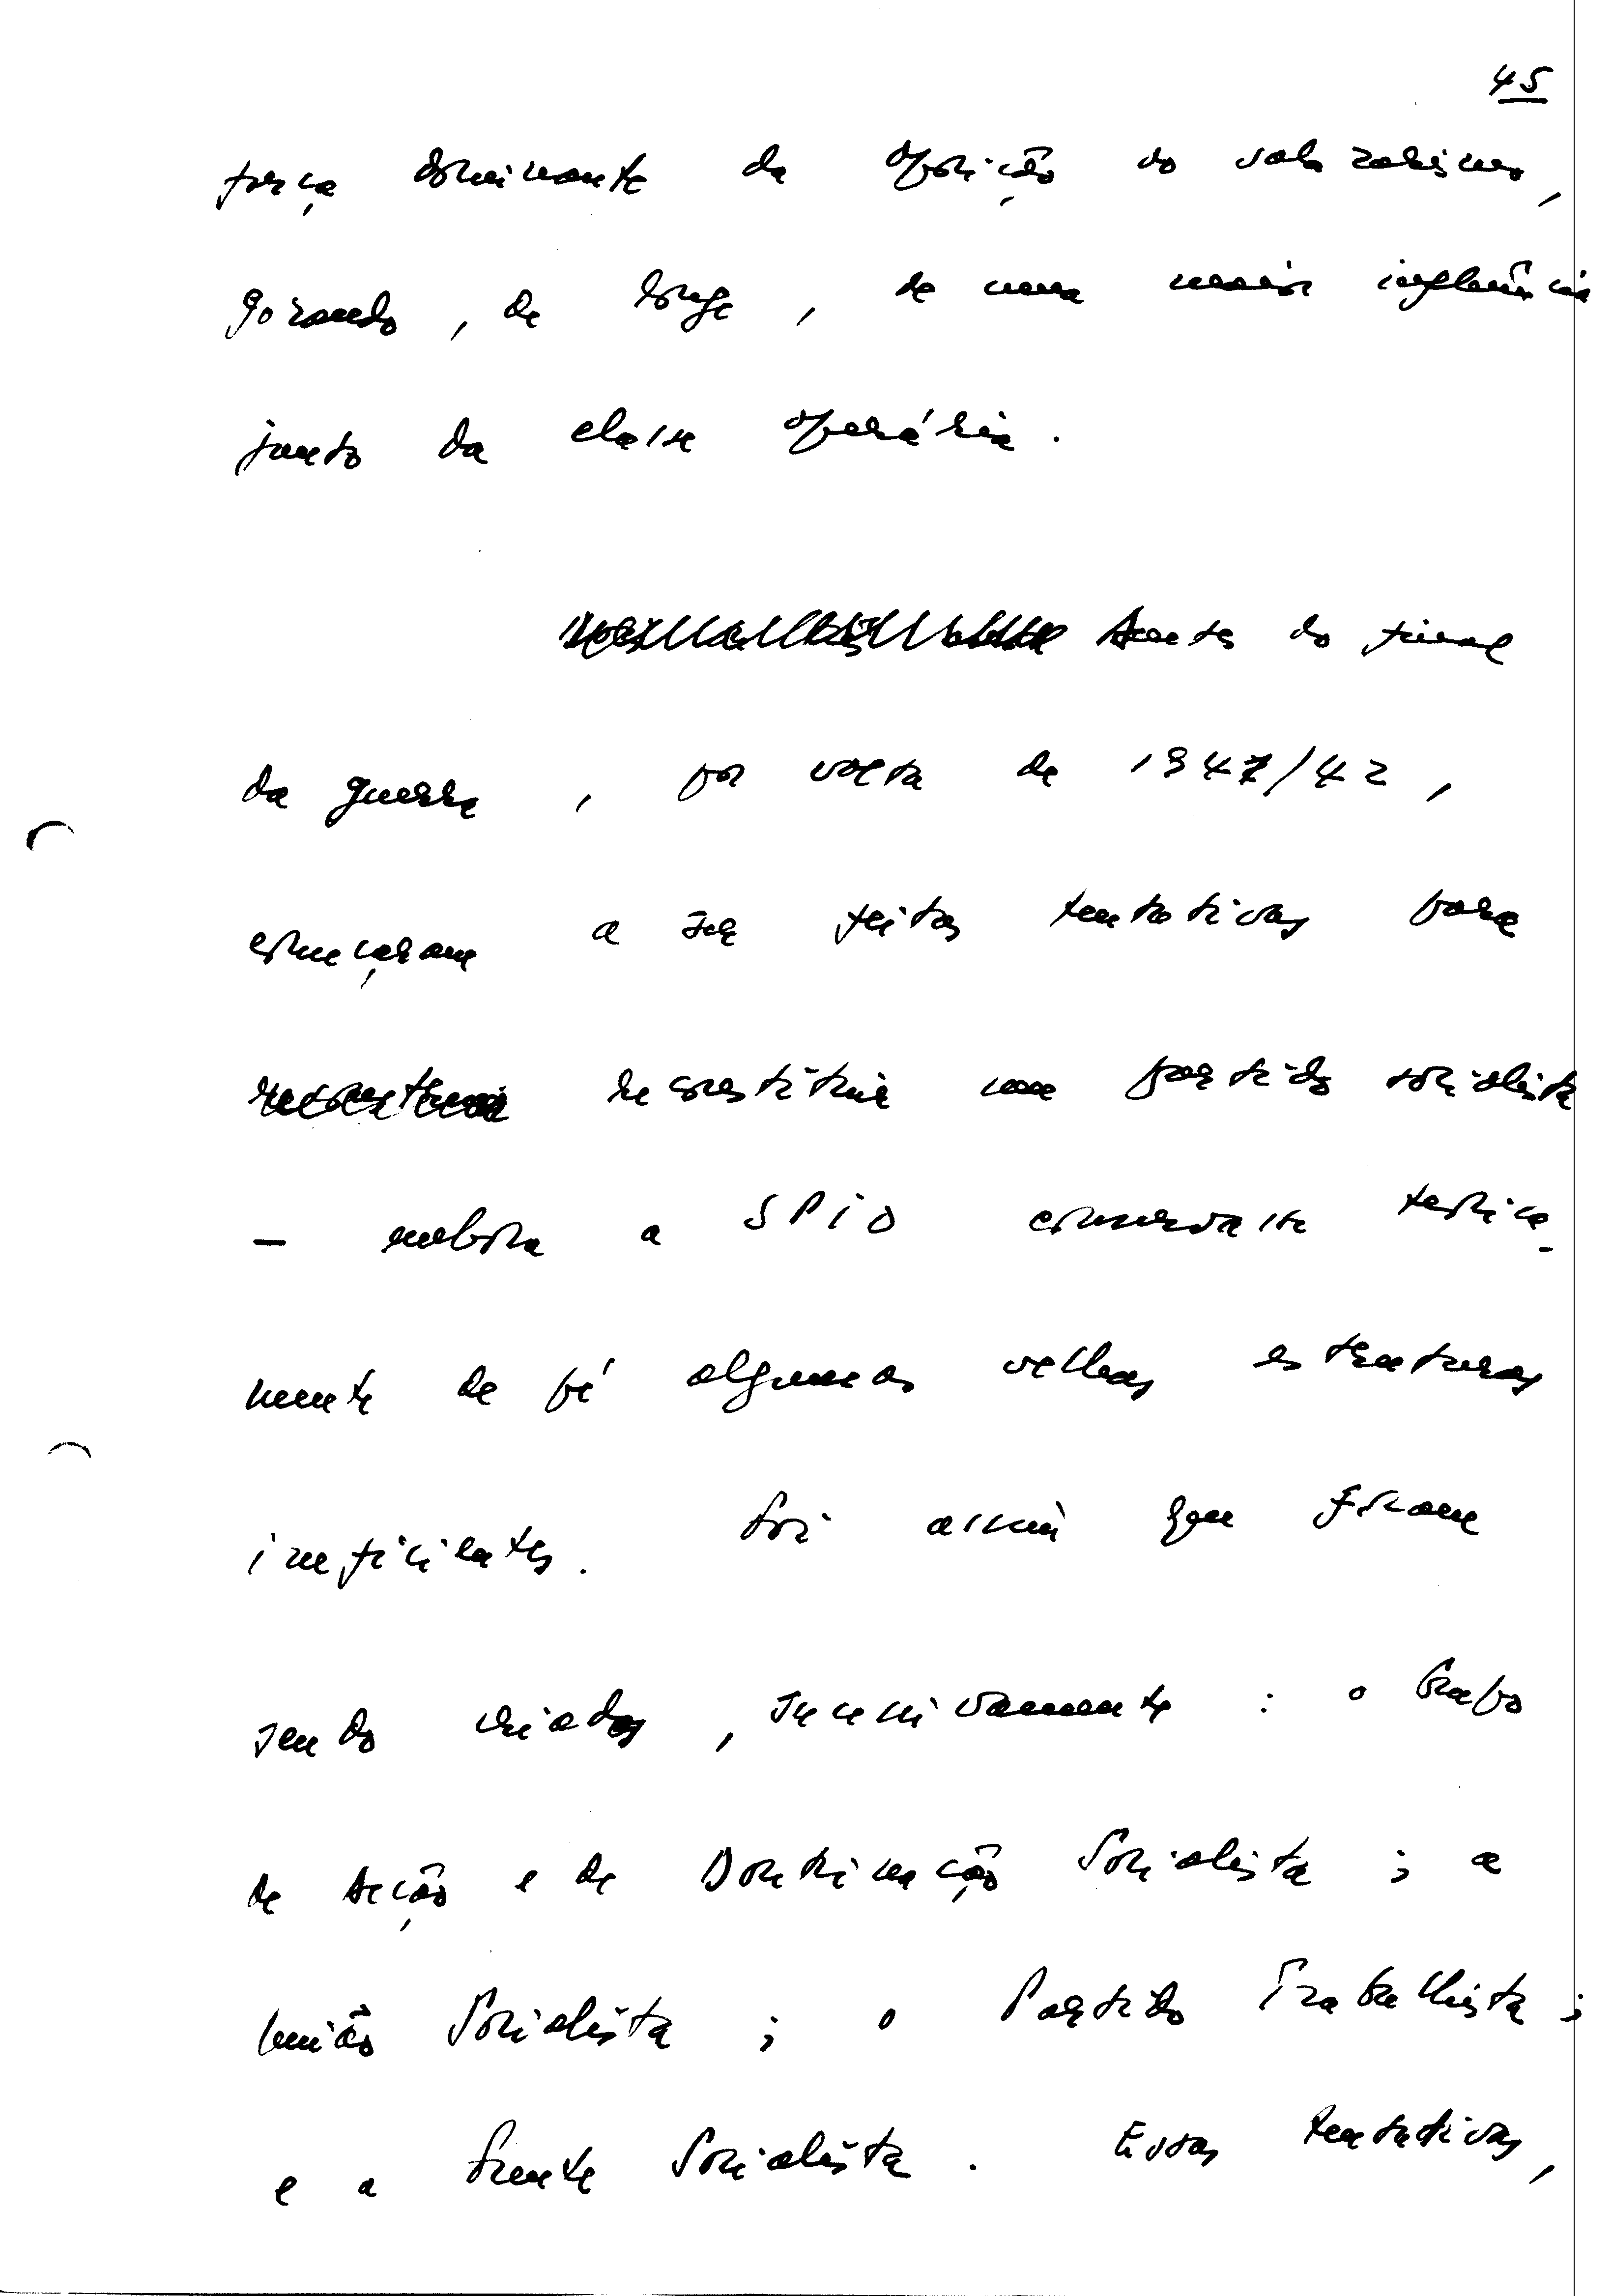 45
força dominante da oposição ao salazarismo,
gozando, de longe, de uma maior influência
junto da classe operária.
Antes do final
da guerra, por volta de 1941/42,
começaram a ser feitas tentativas para
reconstituir um partido socialista
— embora a SPIO conservasse teorica-
mente de pé algumas velhas estruturas
ineficientes. Foi assim que foram
sendo criados, sucessivamente: o Grupo
de Acção e de Doutrinação Socialista; a
União Socialista; o Partido Trabalhista;
e a Frente Socialista. Essas tentativas,